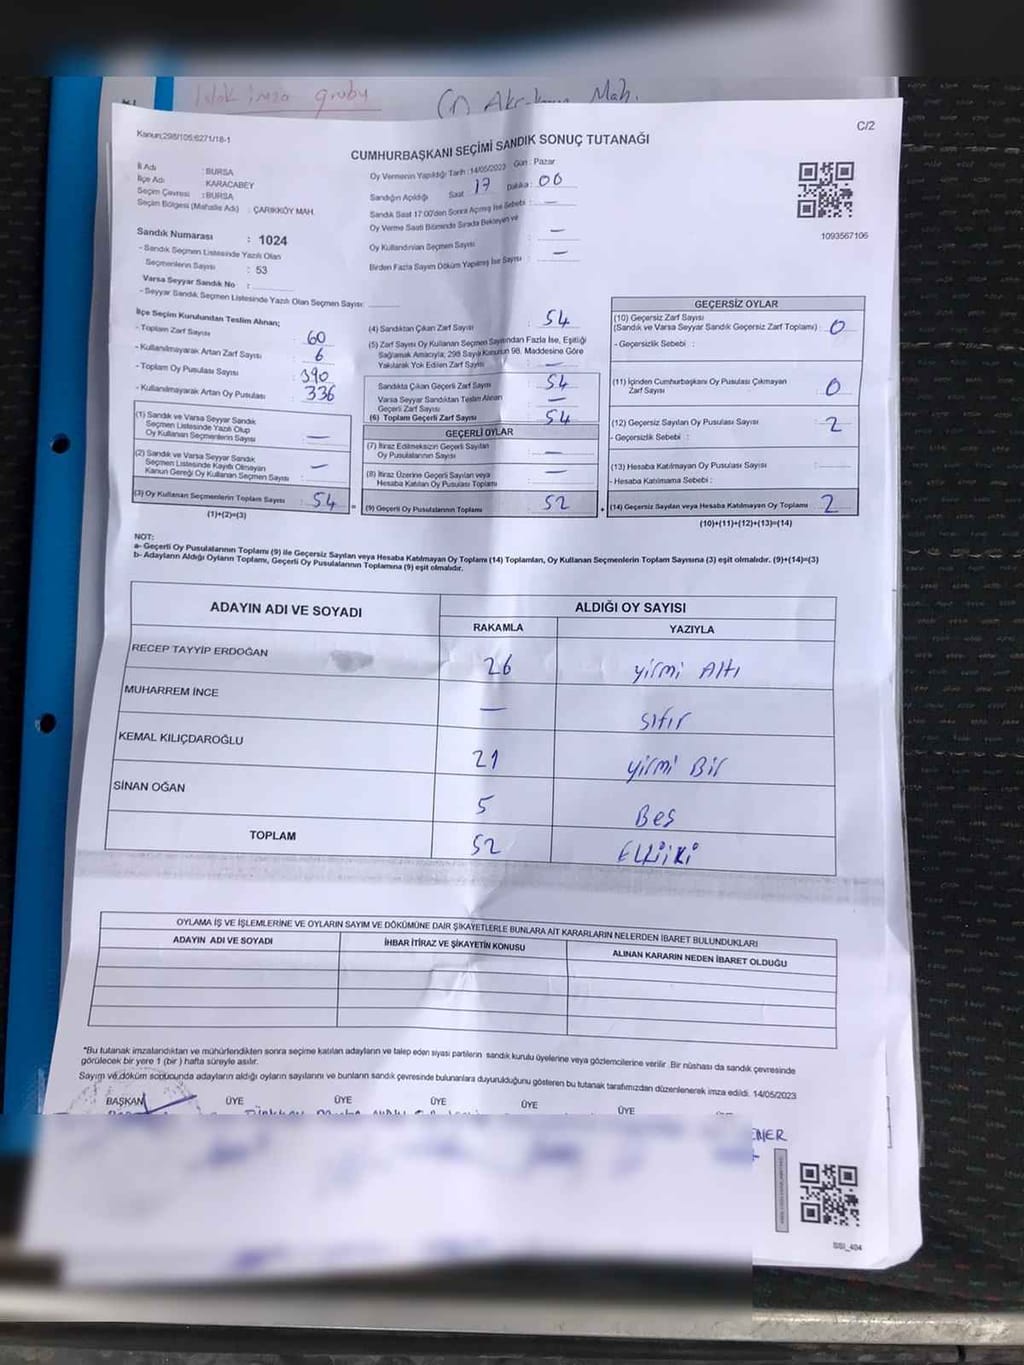 Islak imza grubu
Mah.
Kanun;298/105;6271/18-1
C/2
CUMHURBAŞKANI SEÇİMİ SANDIK SONUÇ TUTANAĞI
İl Adı : BURSA
İlçe Adı : KARACABEY
Seçim Çevresi : BURSA
Seçim Bölgesi (Mahalle Adı) : ÇARIKKÖY MAH.
Oy Vermenin Yapıldığı Tarih :14/05/2023 Gün : Pazar
Sandığın Açıldığı Saat 17 Dakika: 00
Sandık Saat 17:00'den Sonra Açılmış İse Sebebi : —
Oy Verme Saati Bitiminde Sırada Bekleyen ve
Oy Kullandırılan Seçmen Sayısı —
Birden Fazla Sayım Döküm Yapılmış İse Sayısı : —
1093567106
Sandık Numarası : 1024
- Sandık Seçmen Listesinde Yazılı Olan
Seçmenlerin Sayısı : 53
Varsa Seyyar Sandık No :
- Seyyar Sandık Seçmen Listesinde Yazılı Olan Seçmen Sayısı:
İlçe Seçim Kurulundan Teslim Alınan;
- Toplam Zarf Sayısı : 60
- Kullanılmayarak Artan Zarf Sayısı : 6
- Toplam Oy Pusulası Sayısı : 390
- Kullanılmayarak Artan Oy Pusulası : 336
(1) Sandık ve Varsa Seyyar Sandık
Seçmen Listesinde Yazılı Olup
Oy Kullanan Seçmenlerin Sayısı : —
(2) Sandık ve Varsa Seyyar Sandık
Seçmen Listesinde Kayıtlı Olmayan
Kanun Gereği Oy Kullanan Seçmen Sayısı : —
(3) Oy Kullanan Seçmenlerin Toplam Sayısı : 54
(1)+(2)=(3)
(4) Sandıktan Çıkan Zarf Sayısı : 54
(5) Zarf Sayısı Oy Kullanan Seçmen Sayısından Fazla İse, Eşitliği
Sağlamak Amacıyla; 298 Sayılı Kanunun 98. Maddesine Göre
Yakılarak Yok Edilen Zarf Sayısı : —
Sandıkta Çıkan Geçerli Zarf Sayısı : 54
Varsa Seyyar Sandıktan Teslim Alınan
Geçerli Zarf Sayısı : —
(6) Toplam Geçerli Zarf Sayısı : 54
GEÇERLİ OYLAR
(7) İtiraz Edilmeksizin Geçerli Sayılan
Oy Pusulalarının Sayısı : —
(8) İtiraz Üzerine Geçerli Sayılan veya
Hesaba Katılan Oy Pusulası Toplamı : —
= (9) Geçerli Oy Pusulalarının Toplamı : 52
GEÇERSİZ OYLAR
(10) Geçersiz Zarf Sayısı
(Sandık ve Varsa Seyyar Sandık Geçersiz Zarf Toplamı) : 0
- Geçersizlik Sebebi :
(11) İçinden Cumhurbaşkanı Oy Pusulası Çıkmayan
Zarf Sayısı : 0
(12) Geçersiz Sayılan Oy Pusulası Sayısı : 2
- Geçersizlik Sebebi :
(13) Hesaba Katılmayan Oy Pusulası Sayısı :
- Hesaba Katılmama Sebebi :
+ (14) Geçersiz Sayılan veya Hesaba Katılmayan Oy Toplamı : 2
(10)+(11)+(12)+(13)=(14)
NOT:
a- Geçerli Oy Pusulalarının Toplamı (9) ile Geçersiz Sayılan veya Hesaba Katılmayan Oy Toplamı (14) Toplamları, Oy Kullanan Seçmenlerin Toplam Sayısına (3) eşit olmalıdır. (9)+(14)=(3)
b- Adayların Aldığı Oyların Toplamı, Geçerli Oy Pusulalarının Toplamına (9) eşit olmalıdır.
ADAYIN ADI VE SOYADI ALDIĞI OY SAYISI
RAKAMLA YAZIYLA
RECEP TAYYİP ERDOĞAN 26 yirmi Altı
MUHARREM İNCE — sıfır
KEMAL KILIÇDAROĞLU 21 yirmi Bir
SİNAN OĞAN 5 Beş
TOPLAM 52 Elliiki
OYLAMA İŞ VE İŞLEMLERİNE VE OYLARIN SAYIM VE DÖKÜMÜNE DAİR ŞİKAYETLERLE BUNLARA AİT KARARLARIN NELERDEN İBARET BULUNDUKLARI
ADAYIN ADI VE SOYADI İHBAR İTİRAZ VE ŞİKAYETİN KONUSU ALINAN KARARIN NEDEN İBARET OLDUĞU
*Bu tutanak imzalandıktan ve mühürlendikten sonra seçime katılan adayların ve talep eden siyasi partilerin sandık kurulu üyelerine veya gözlemcilerine verilir. Bir nüshası da sandık çevresinde
görülecek bir yere 1 (bir ) hafta süreyle asılır.
Sayım ve döküm sonucunda adayların aldığı oyların sayılarını ve bunların sandık çevresinde bulunanlara duyurulduğunu gösteren bu tutanak tarafımızdan düzenlenerek imza edildi. 14/05/2023
BAŞKAN ÜYE ÜYE ÜYE ÜYE
ENER
SSI_404